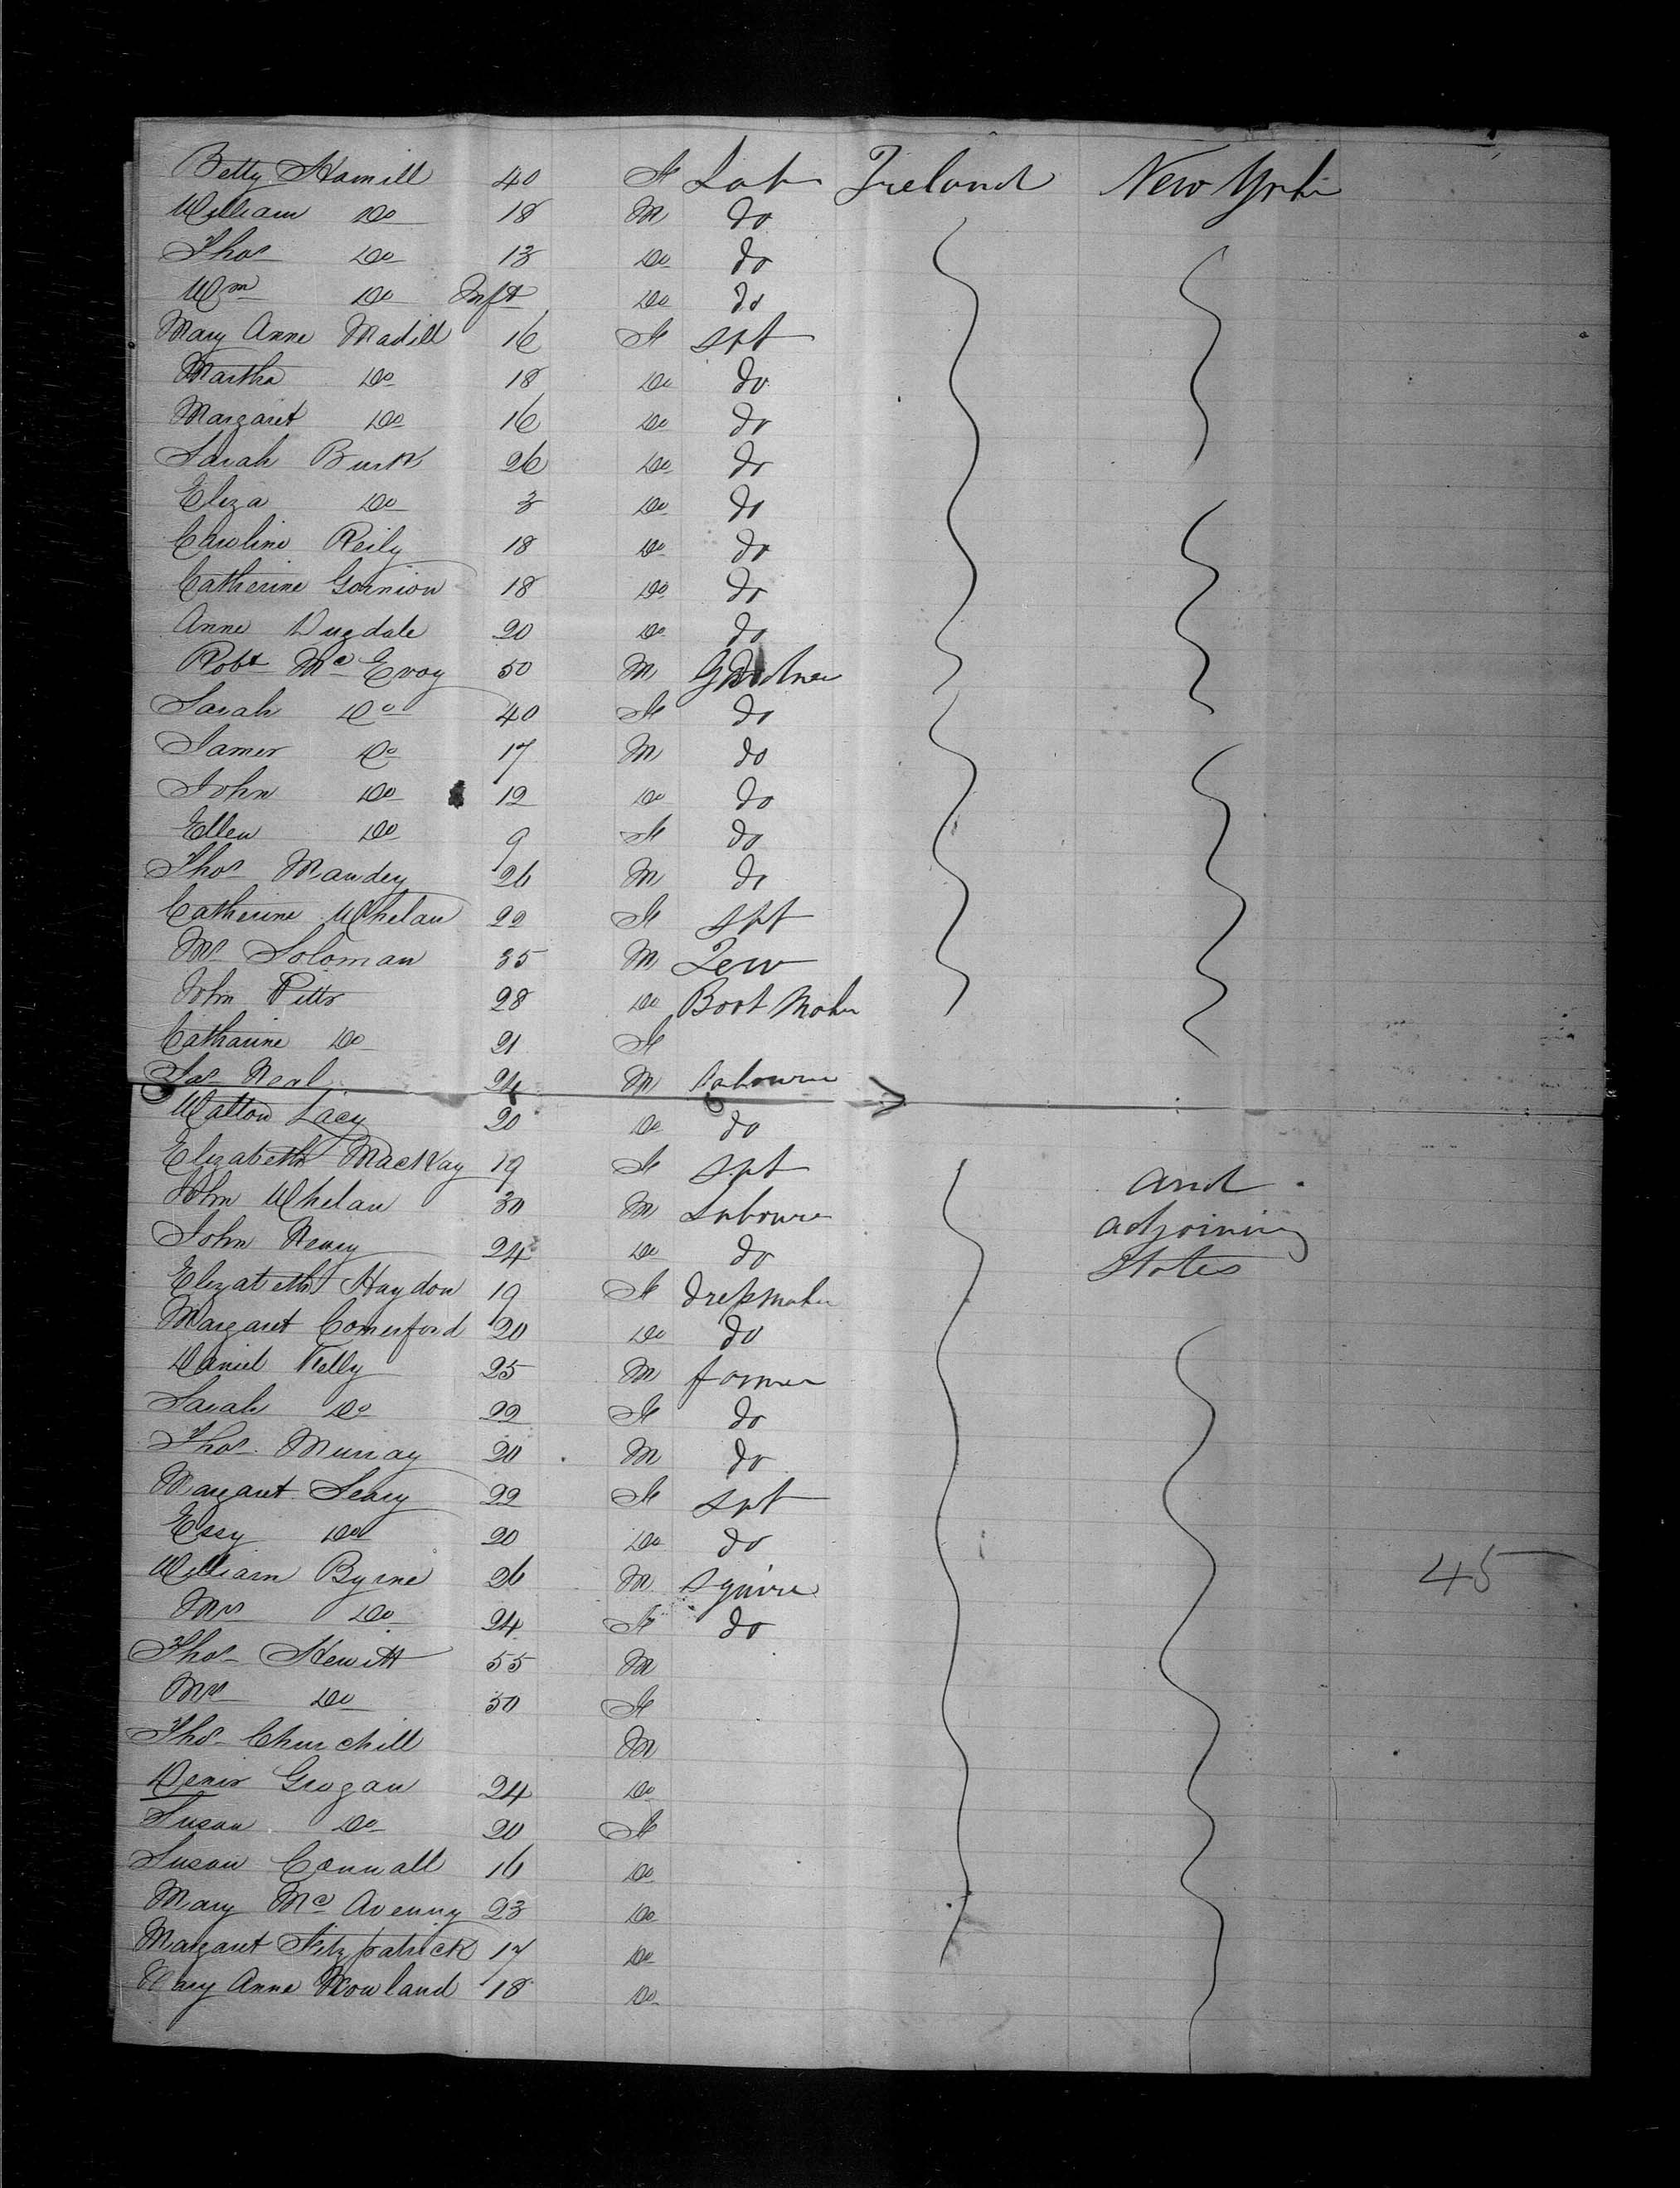 Betty Hamill 40 F Lab Ireland New York
William Do 18 M do
Thos Do 13 Do do
Wm Do Inft Do do
Mary Anne Madill 16 F spt
Martha Do 18 Do do
Margaret Do 16 Do do
Sarah Burk 26 Do do
Eliza Do 3 Do do
Caroline Reily 18 Do do
Catherine Gornion 18 Do do
Anne Dugdale 20 Do do
Robt Mc Evoy 50 M
Sarah Do 40 F do
James Do 17 M do
John Do 12 Do do
Ellen Do 9 F do
Thos Mandey 26 M do
Catherine Whelan 22 F spt
Mr Soloman 35 M Jew
John Pitts 28 Do Boot Maker
Catharine Do 21 F
Jas Neal 24 M Labourer
Walton Lacy 20 Do do
Elizabeth MacKay 19 F spt
John Whelan 30 M Labourer and
John Neary 24 Do do adjoining
Elizabeth Haydon 19 F dressmaker States
Margaret Comerford 20 Do do
Daniel Kelly 25 M farmer
Sarah Do 22 F do
Thos. Murray 20 M do
Margaret Leary 22 F spt
Essy Do 20 Do do
William Byrne 26 M Squire 45
Mrs Do 24 F do
Thos Hewitt 55 M
Mrs Do 50 F
Thos Churchill M
Denis Grogan 24 Do
Susan Do 20 F
Susan Connall 16 Do
Mary Mc Avenny 23 Do
Margaret Fitzpatrick 17 Do
Mary Anne Rowland 18 Do